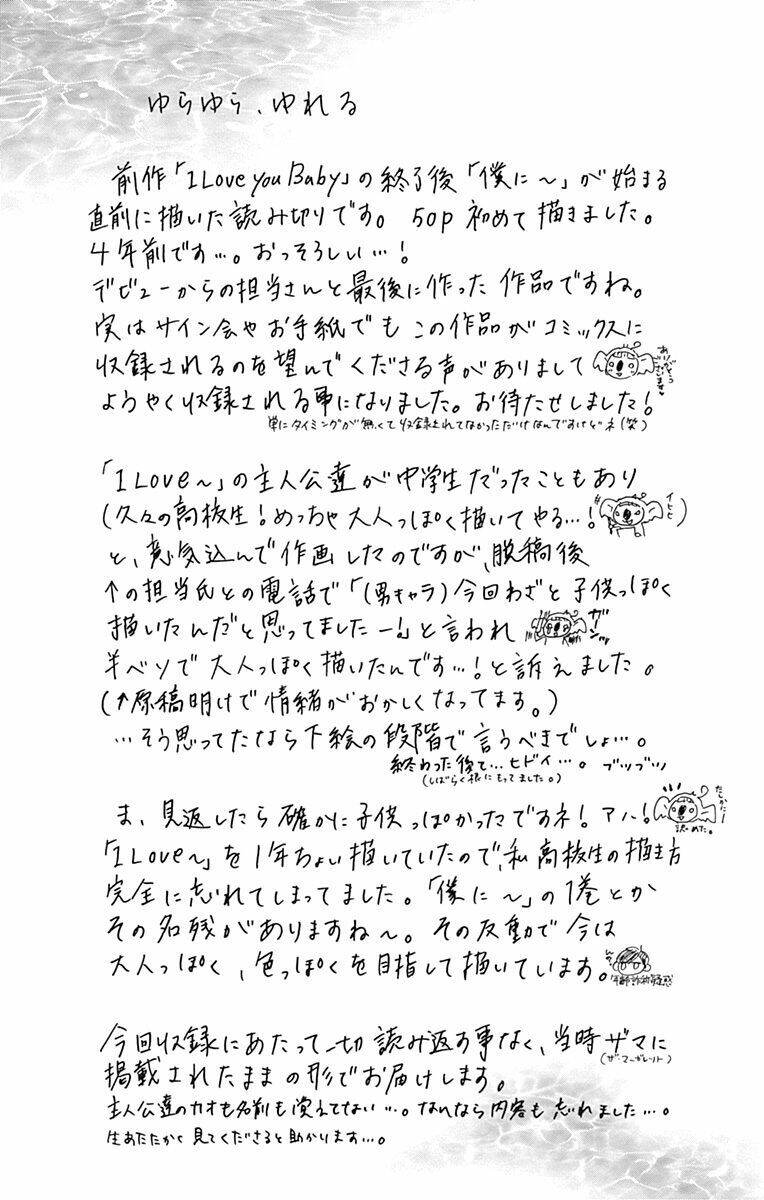 ゆらゆら、ゆれる
前作「I Love you Baby」の終了後「僕に〜」が始まる
直前に描いた読み切りです。50p 初めて描きました。
4年前です…。おっそろしい…!
デビューからの担当さんと最後に作った作品ですね。
実はサイン会やお手紙でもこの作品がコミックスに
収録されるのを望んでくださる声がありまして
ありがとうございます
ようやく収録される事になりました。お待たせしました!
単にタイミングが無くて収録されてなかっただけなんですけどネ(笑)
「I Love〜」の主人公達が中学生だったこともあり
(久々の高校生!めっちゃ大人っぽく描いてやる…!
イヒヒ)
と、意気込んで作画したのですが、脱稿後
↑の担当氏との電話で「(男キャラ)今回わざと子供っぽく
描いたんだと思ってましたー!」と言われ
ガーン
半ベソで大人っぽく描いたんです…!と訴えました。
(↑原稿明けで情緒がおかしくなってます。)
…そう思ってたなら下絵の段階で言うべきでしょ…。
終わった後で…ヒドイ…。ブツブツ
(しばらく根にもってました。)
ま、見返したら確かに子供っぽかったですネ!アハ!
たしかにー
認めた。
「I Love〜」を1年ちょい描いていたので、私高校生の描き方
完全に忘れてしまってました。「僕に〜」の1巻とか
その名残がありますね〜。その反動で今は
大人っぽく、色っぽくを目指して描いています。
年齢詐称疑惑
今回収録にあたって一切読み返す事なく、当時ザマに
(ザ・マーガレット)
掲載されたままの形でお届けします。
主人公達のカオも名前も覚えてない…。なんなら内容も忘れました…。
生あたたかく見てくださると助かります…。